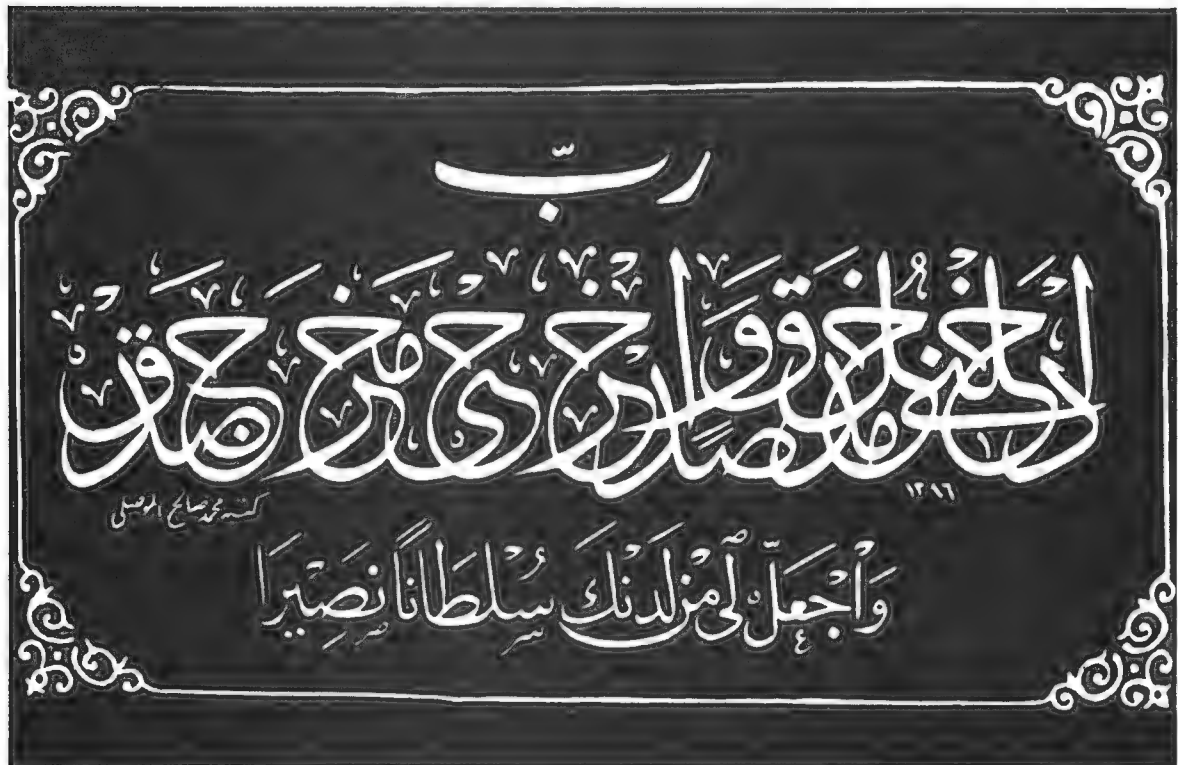 ربّ
أدخلني مدخل صدق وأخرجني مخرج صدق
١٣٨٦
كتبه محمد صالح الموصلي
وَاجْعَلّ لي مِنْ لَدُنْكَ سُلْطَانًا نَصِيْرًا